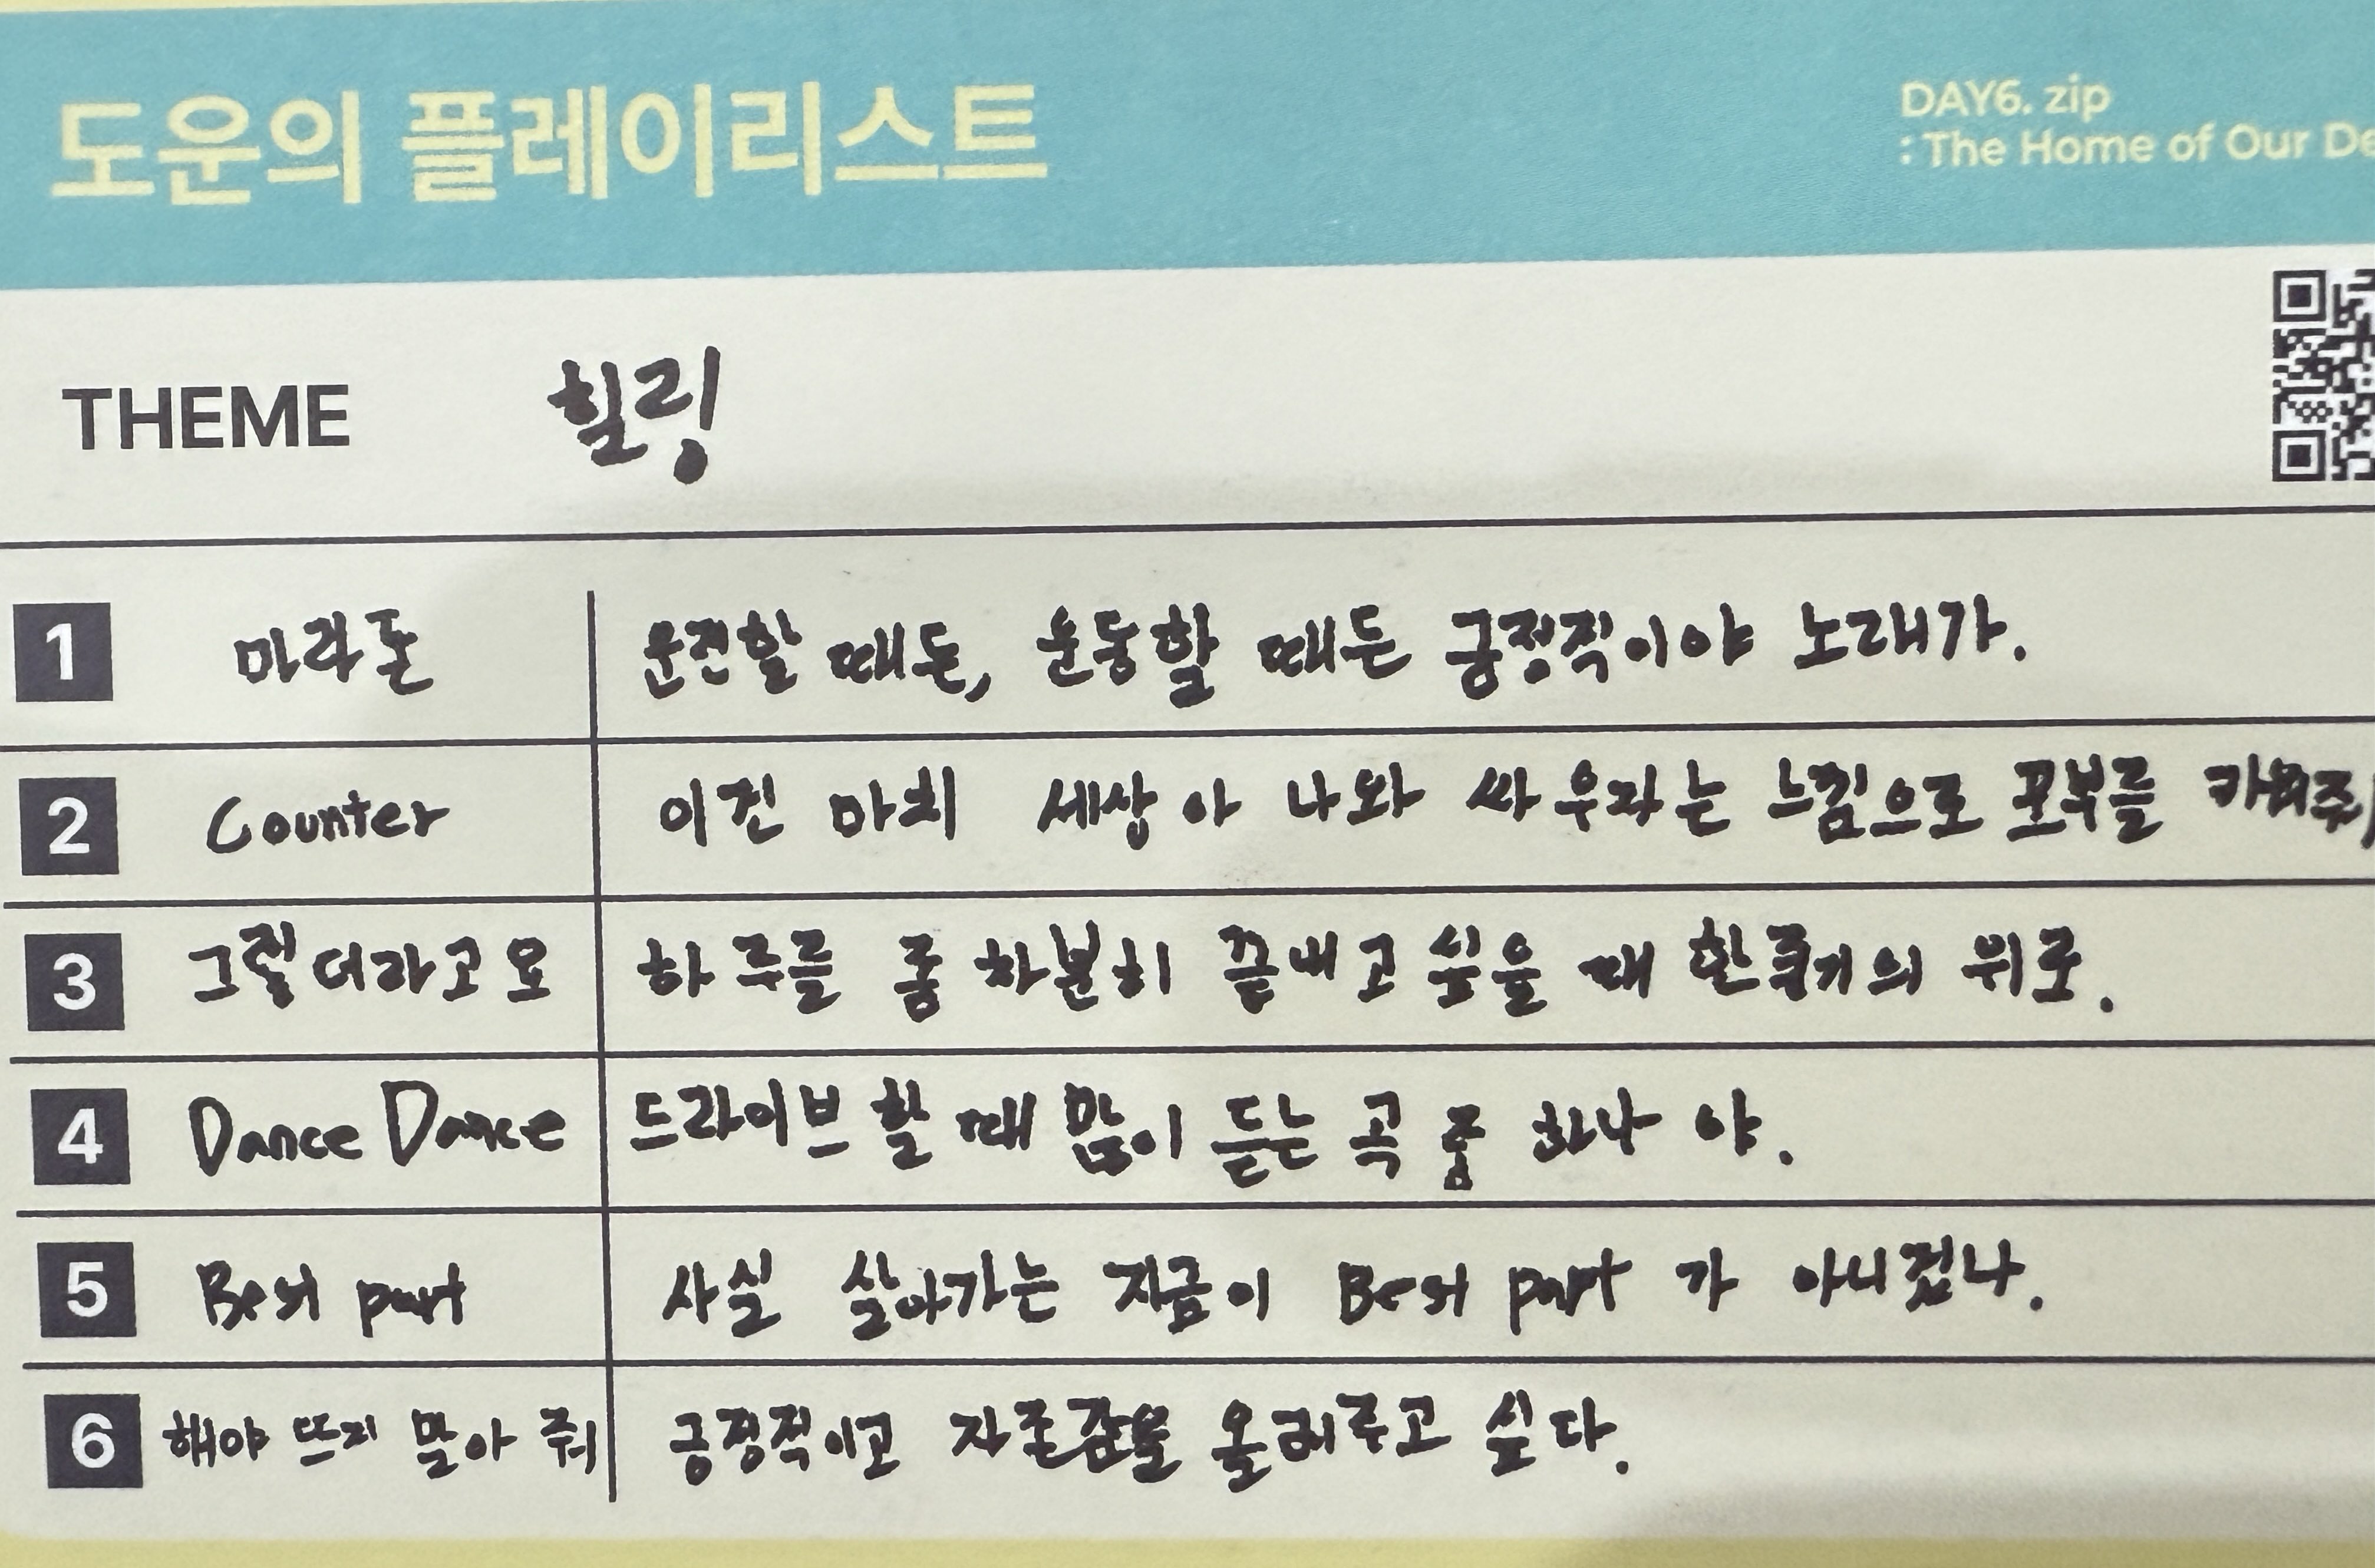 도운의 플레이리스트
DAY6. zip
: The Home of Our De
THEME 힐링
1 마라톤 운전할 때든, 운동할 때든 긍정적이야 노래가.
2 Counter 이건 마치 세상아 나와 싸우자는 느낌으로 포부를 키워주
3 그렇더라고요 하루를 좀 차분히 끝내고 싶을 때 한 의 위로.
4 Dance Dance 드라이브 할 때 많이 듣는 곡 중 하나 야.
5 Best part 사실 살아가는 지금이 Best part 가 아니겠나.
6 해야 뜨지 말아 줘 긍정적이고 자존감을 올려주고 싶다.